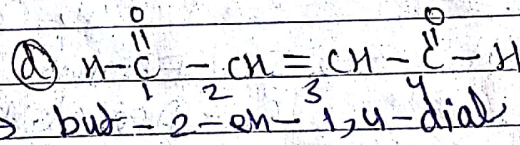 O O
(d) H-C-CH=CH-C-H
1 2 3 4
but-2-en-1,4-dial